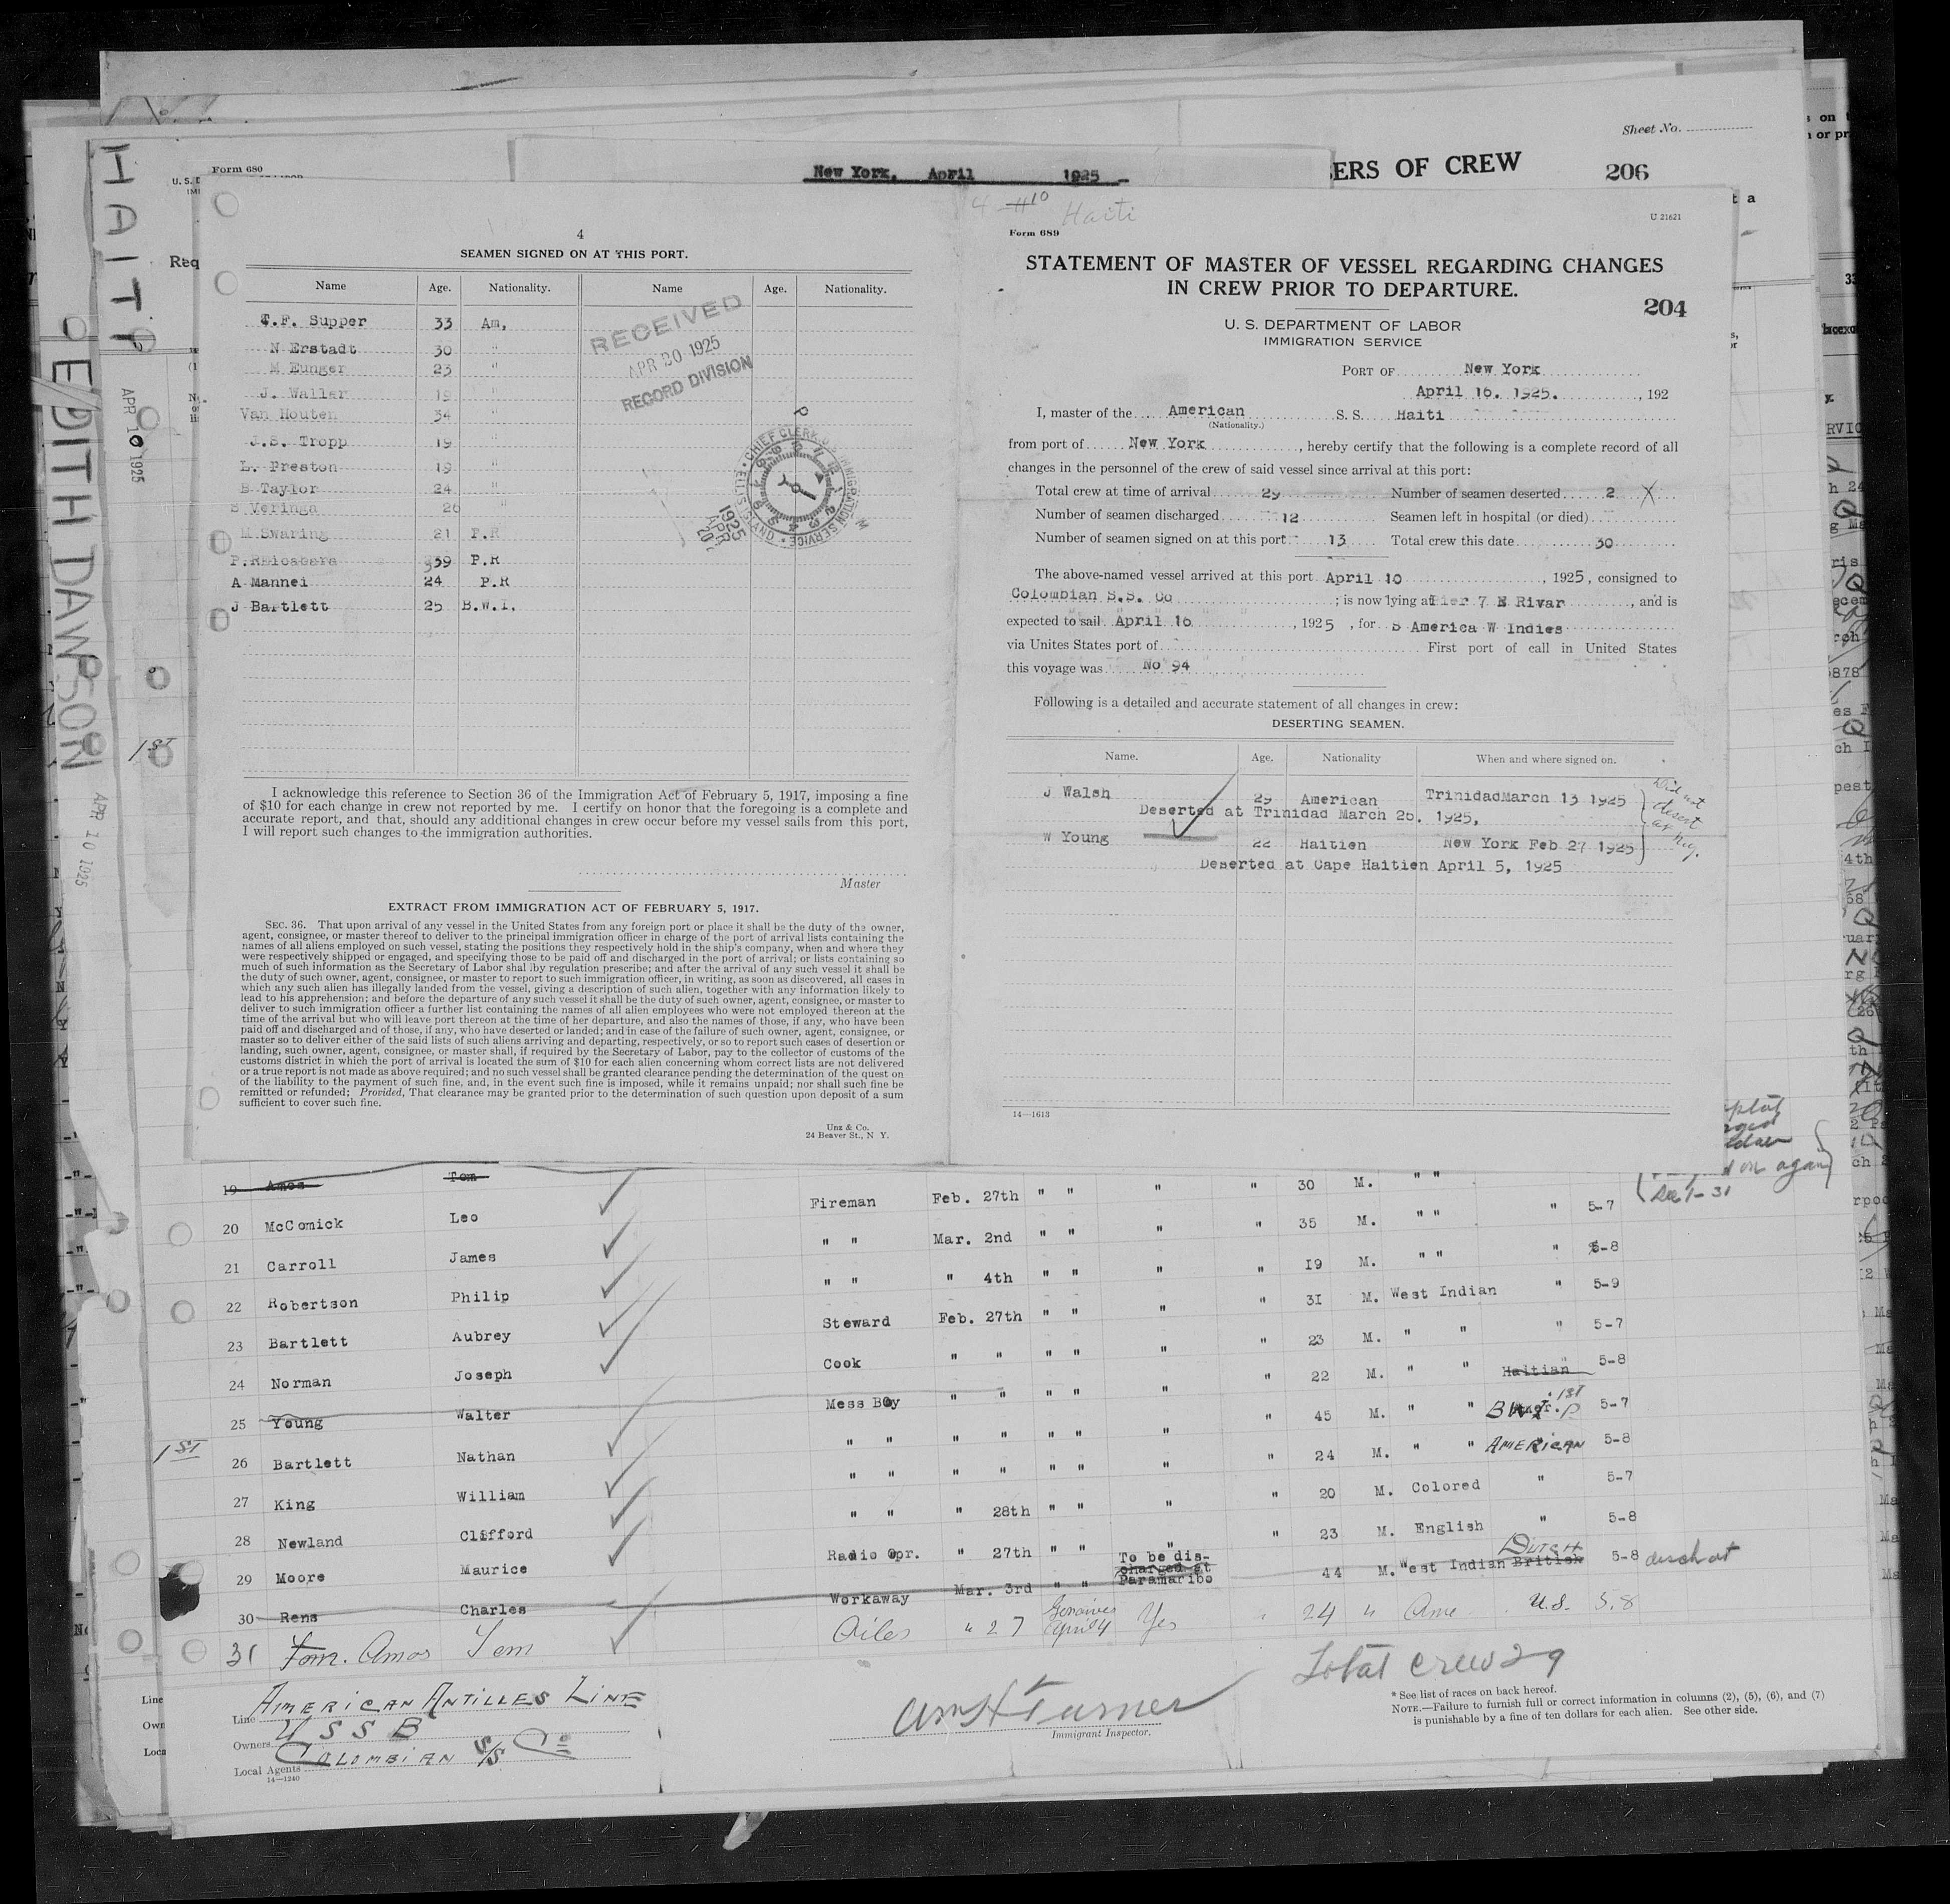 Sheet No.
Form 680
New York, April 1925
ERS OF CREW
206
HAITI
EDITH DAWSON
APR 10 1925
APR 10 1925
1ST
Req
4
SEAMEN SIGNED ON AT THIS PORT.
Name Age. Nationality. Name Age. Nationality.
T.F. Supper 33 Am,
N Erstadt 30 "
M Eunger 23 "
J. Waller 19 "
Van Houten 34 "
J.S. Tropp 19 "
L. Preston 19 "
B Taylor 24 "
S Veringa 26 "
M Swaring 21 P.R
39 P.R
A Mannei 24 P.R
J Bartlett 25 B.W.I.
RECEIVED
APR 20 1925
RECORD DIVISION
I acknowledge this reference to Section 36 of the Immigration Act of February 5, 1917, imposing a fine
of $10 for each change in crew not reported by me. I certify on honor that the foregoing is a complete and
accurate report, and that, should any additional changes in crew occur before my vessel sails from this port,
I will report such changes to the immigration authorities.
Master
EXTRACT FROM IMMIGRATION ACT OF FEBRUARY 5, 1917.
SEC. 36. That upon arrival of any vessel in the United States from any foreign port or place it shall be the duty of the owner,
agent, consignee, or master thereof to deliver to the principal immigration officer in charge of the port of arrival lists containing the
names of all aliens employed on such vessel, stating the positions they respectively hold in the ship's company, when and where they
were respectively shipped or engaged, and specifying those to be paid off and discharged in the port of arrival; or lists containing so
much of such information as the Secretary of Labor shal lby regulation prescribe; and after the arrival of any such vessel it shall be
the duty of such owner, agent, consignee, or master to report to such immigration officer, in writing, as soon as discovered, all cases in
which any such alien has illegally landed from the vessel, giving a description of such alien, together with any information likely to
lead to his apprehension; and before the departure of any such vessel it shall be the duty of such owner, agent, consignee, or master to
deliver to such immigration officer a further list containing the names of all alien employees who were not employed thereon at the
time of the arrival but who will leave port thereon at the time of her departure, and also the names of those, if any, who have been
paid off and discharged and of those, if any, who have deserted or landed; and in case of the failure of such owner, agent, consignee, or
master so to deliver either of the said lists of such aliens arriving and departing, respectively, or so to report such cases of desertion or
landing, such owner, agent, consignee, or master shall, if required by the Secretary of Labor, pay to the collector of customs of the
customs district in which the port of arrival is located the sum of $10 for each alien concerning whom correct lists are not delivered
or a true report is not made as above required; and no such vessel shall be granted clearance pending the determination of the quest on
of the liability to the payment of such fine, and, in the event such fine is imposed, while it remains unpaid; nor shall such fine be
remitted or refunded; Provided, That clearance may be granted prior to the determination of such question upon deposit of a sum
sufficient to cover such fine.
Unz & Co.
24 Beaver St., N Y.
Haiti
U 21621
Form 689
STATEMENT OF MASTER OF VESSEL REGARDING CHANGES
IN CREW PRIOR TO DEPARTURE.
204
U. S. DEPARTMENT OF LABOR
IMMIGRATION SERVICE
PORT OF New York
April 16. 1925. , 192
I, master of the American S. S. Haiti
(Nationality.)
from port of New York , hereby certify that the following is a complete record of all
changes in the personnel of the crew of said vessel since arrival at this port:
Total crew at time of arrival 29 Number of seamen deserted 2 X
Number of seamen discharged 12 Seamen left in hospital (or died)
Number of seamen signed on at this port 13 Total crew this date 30
The above-named vessel arrived at this port April 10 , 1925, consigned to
Colombian S.S. Co ; is now lying at Pier 7 E Rivar , and is
expected to sail April 16 , 1925 , for S America W Indies
via Unites States port of First port of call in United States
this voyage was No 94
Following is a detailed and accurate statement of all changes in crew:
DESERTING SEAMEN.
Name. Age. Nationality When and where signed on.
J Walsh 29 American Trinidad March 13 1925
Deserted at Trinidad March 26. 1925,
W Young 22 Haitien New York Feb 27 1925
Deserted at Cape Haitien April 5, 1925
Did not
desert
at N.Y.
14—1613
19 Amos Tom Fireman Feb. 27th " " " " 30 M. " "
20 McComick Leo " " Mar. 2nd " " " " 35 M. " " " 5-7
21 Carroll James " " " 4th " " " " 19 M. " " " 5-8
22 Robertson Philip Steward Feb. 27th " " " " 31 M. West Indian " 5-9
23 Bartlett Aubrey Cook " " " " " " 23 M. " " " 5-7
24 Norman Joseph Mess Boy " " " " " " 22 M. " " Haitian 5-8
25 Young Walter " " " " " " " " 45 M. " " B.W.I. 5-7
1ST
26 Bartlett Nathan " " " " " " " " 24 M. " " AMERICAN 5-8
27 King William " " " 28th " " " " 20 M. Colored " 5-7
28 Newland Clifford Radio Opr. " 27th " " " " 23 M. English " 5-8
29 Moore Maurice Workaway Mar. 3rd " " To be discharged at Paramaribo 44 M. West Indian British DUTCH 5-8 disch at
30 Rens Charles
31 Tom. Amos Tom Oiler " 27 Gonaives April 4 Yes " 24 " Ame U.S. 5.8
Total crew 29
Line AMERICAN ANTILLES LINE
Owners U S S B
Local Agents COLOMBIAN S/S Co
14—1240
Wm H Turner
Immigrant Inspector.
* See list of races on back hereof.
NOTE.—Failure to furnish full or correct information in columns (2), (5), (6), and (7)
is punishable by a fine of ten dollars for each alien. See other side.